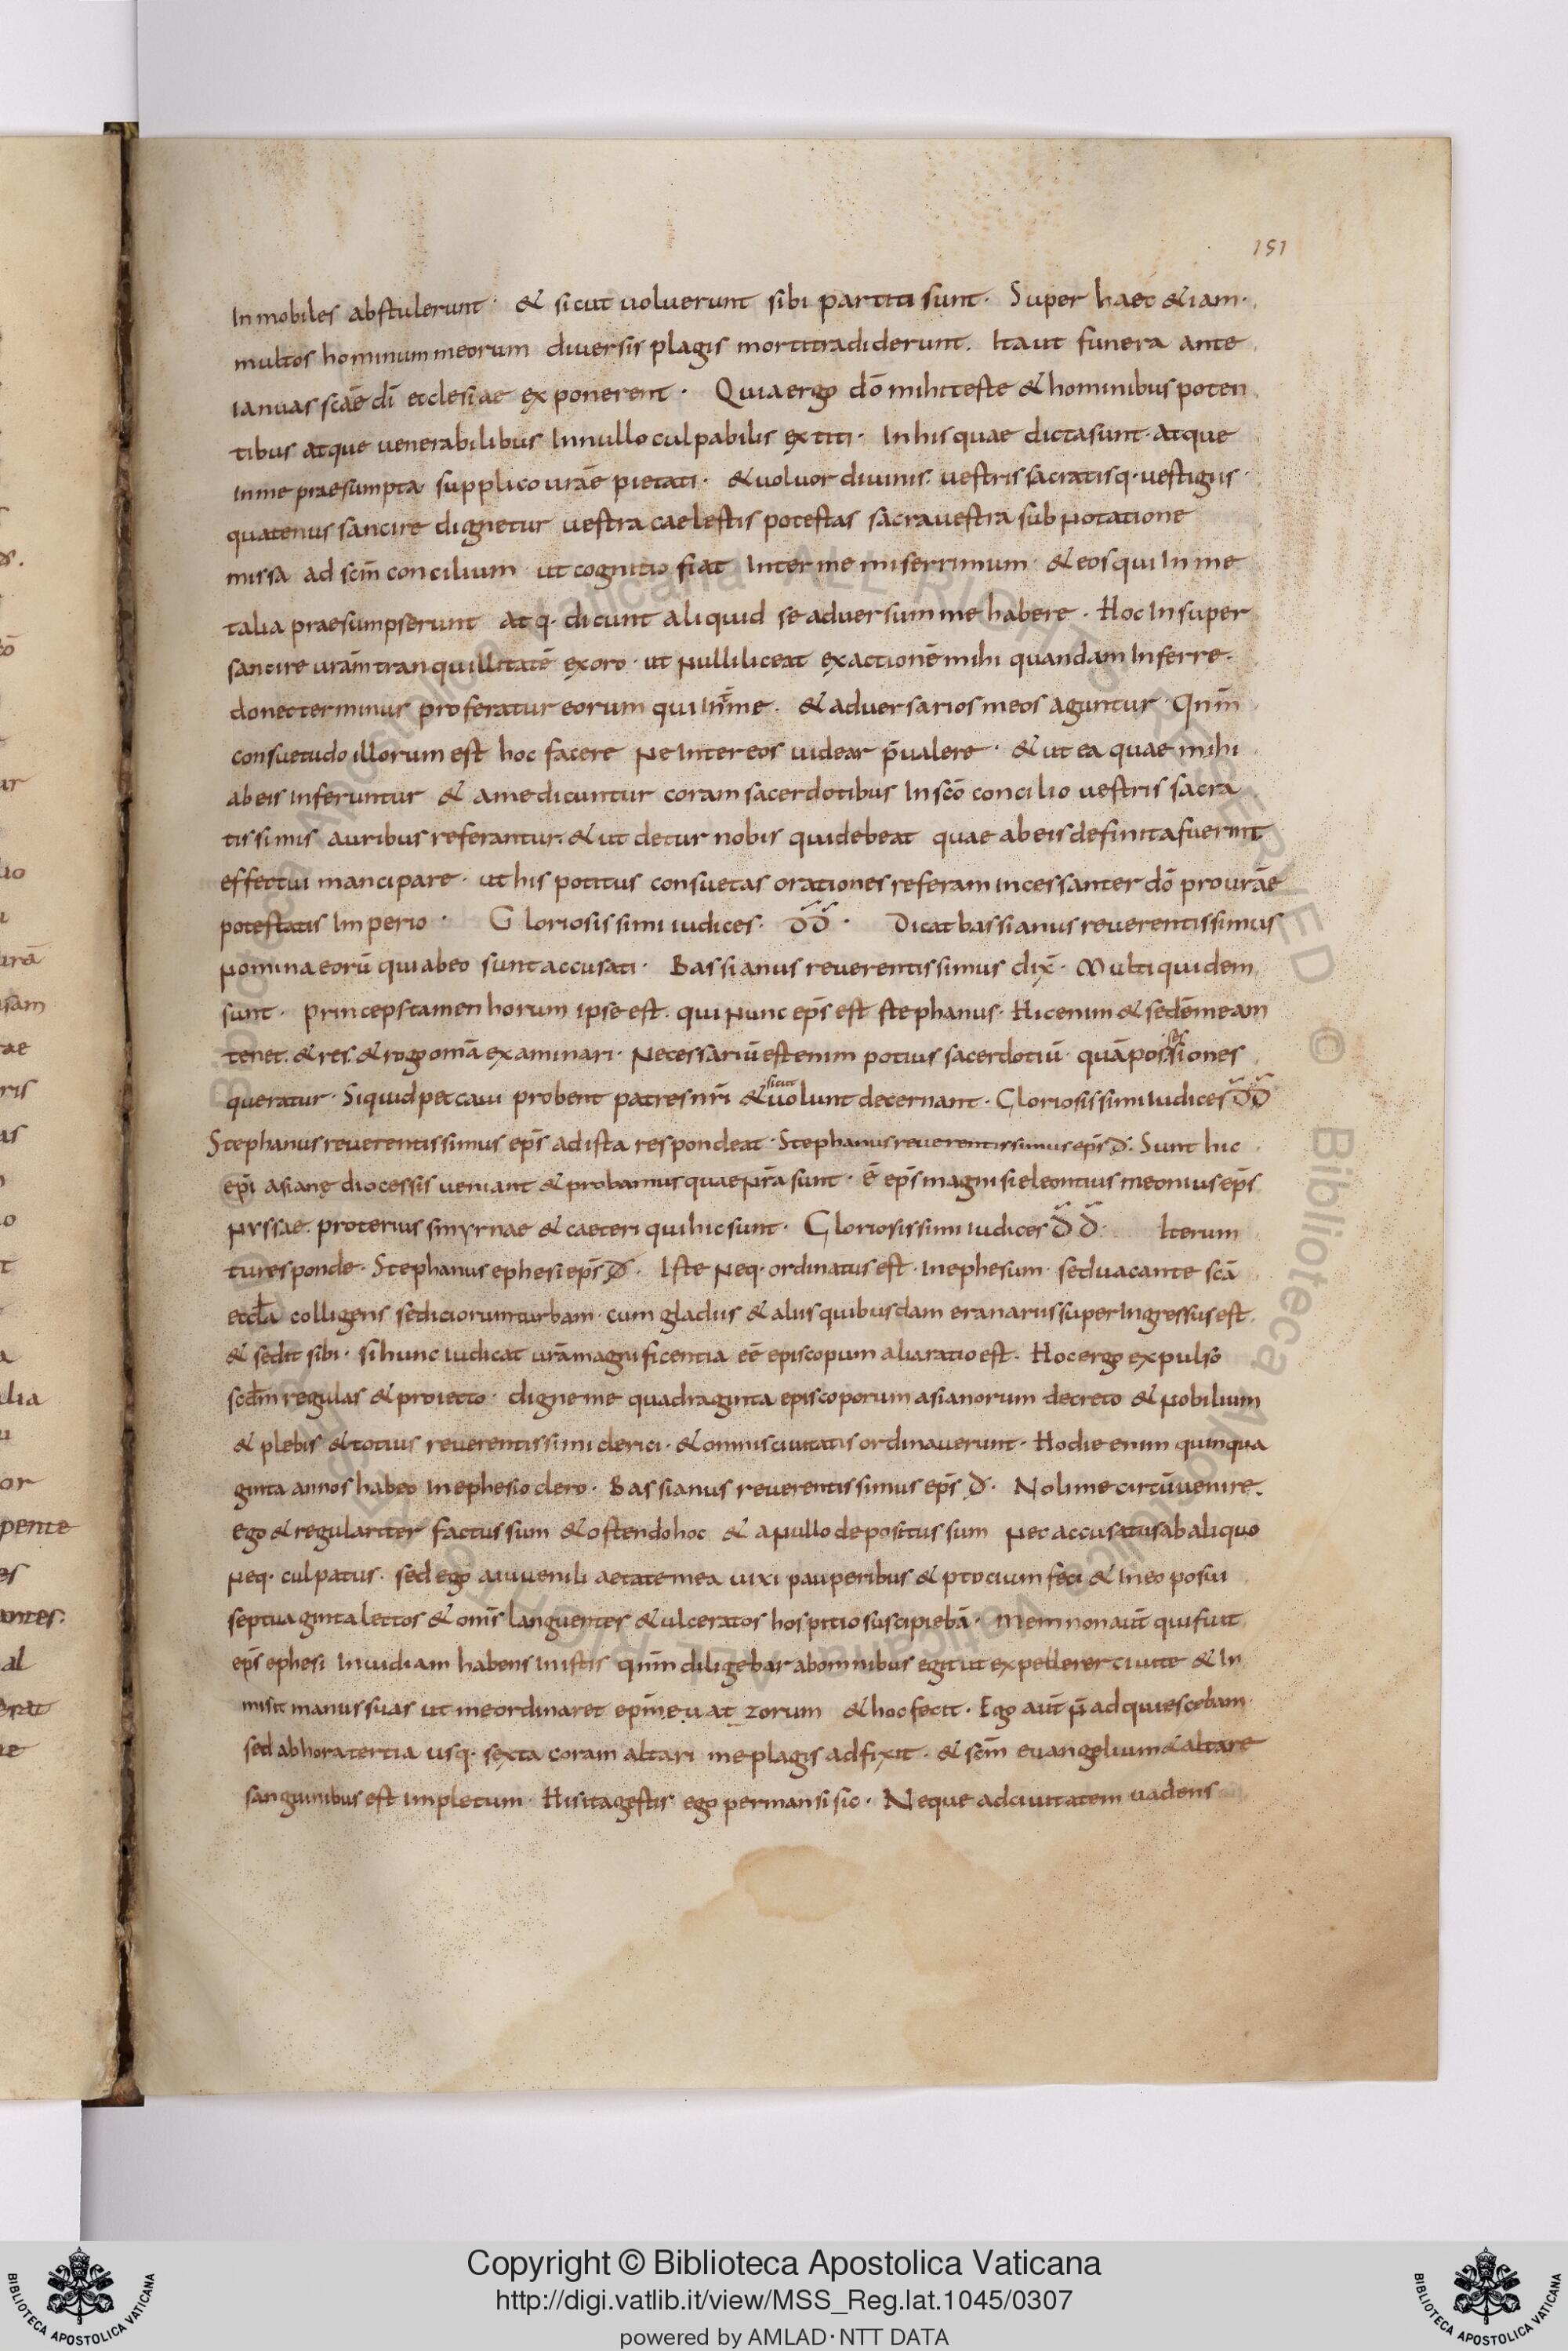 151
Inmobiles abstulerunt · & sicut uoluerunt sibi partiti sunt · Super haec & iam ·
multos hominum meorum diuersis plagis morti tradiderunt. Ita ut funera ante
ianuas scāe dī ecclesiae exponerent · Quia ergo dō mihi teste & hominibus poten
tibus atque uenerabilibus In nullo culpabilis extiti · In his quae dicta sunt · atque
in me praesumpta supplico urāe pietati · & uoluor diuinis uestris sacratisq · uestigiis ·
quatenus sancire dignetur uestra caelestis potestas sacra uestra sub Notatione
missa ad scm̄ concilium · ut cognitio fiat Inter me miserrimum · & eos qui In me
talia praesumpserunt atq · dicunt aliquid se aduersum me habere · Hoc Insuper
sancire urām tranquillitatē exoro · ut Nulli liceat exactionē mihi quandam Inferre ·
donec terminus proferatur eorum qui In me · & aduersarios meos aguntur · Qnm̄
consuetudo illorum est hoc facere Ne Inter eos uidear p̄ualere · & ut ea quae mihi
ab eis Inferuntur & a me dicuntur coram sacerdotibus In scō concilio uestris sacra
tissimis auribus referantur. & ut detur nobis qui debeat quae ab eis definita fuerint
effectui mancipare · ut his potitus consuetas orationes referam incessanter dō pro urāe
potestatis Imperio · Gloriosissimi iudices · đđ · Dicat bassianus reuerentissimus
Nomina eorū qui ab eo sunt accusati · Bassianus reuerentissimus dix̄ · Multi quidem
sunt · princeps tamen horum ipse est · qui Nunc ep̄s est stephanus · Hic enim & sedē meam
tenet. & res. & rogo omā examinari · Necessariū est enim potius sacerdotiū · quā possessiones
queratur · Si quid peccaui probent patres nr̄i & sicut uolunt decernant · Gloriosissimi Iudices đđ
Stephanus reuerentissimus ep̄s ad ista respondeat · Stephanus reuerentissimus ep̄s đ. Sunt hic
ep̄i asianę diocessis ueniant & probamus quae Nr̄a sunt · ē ep̄s magnisie leontius meonius ep̄s
Nyssae. proterius smyrnae & caeteri qui hic sunt · Gloriosissimi Iudices đ đ · Iterum
tu responde · Stephanus ephesi ep̄s đ · Iste Neq · ordinatus est · In ephesum · sed uacante scā
eccła colligens sediciorum turbam · cum gladiis & aliis quibusdam eranariis super Ingressus est ·
& sedit sibi · si hunc iudicat urā magnificentia eē episcopum alia ratio est · Hoc ergo expulso
scdm̄ regulas & proiecto · digne me quadraginta episcoporum asianorum decreto & Nobilium
& plebis & totius reuerentissimi clerici · & omnis ciuitatis ordinauerunt · Hodie enim quinqua
ginta annos habeo In ephesio clero · Bassianus reuerentissimus ep̄s đ · Noli me circūuenire ·
ego & regulariter factus sum & ostendo hoc & a Nullo depositus sum Nec accusatus ab aliquo
Neq · culpatus · sed ego a iuuenili aetate mea uixi pauperibus & ptocium feci & In eo posui
septuaginta lectos & omīs languentes & ulceratos hospitio suscipiebā · Memnon aūt qui fuit
ep̄s ephesi Inuidiam habens In istis qnm̄ diligebar ab omnibus egit ut expellerer ciuite & In
misit manus suas ut me ordinaret ep̄m euatzorum & hoc fecit · Ego aūt Nō adquiescebam ·
sed ab hora tertia usq · sexta coram altari me plagis adfixit · & scm̄ euangelium & altare
sanguinibus est impletum · His ita gestis ego permansi sic · Neque ad ciuitatem uadens
Copyright © Biblioteca Apostolica Vaticana
http://digi.vatlib.it/view/MSS_Reg.lat.1045/0307
powered by AMLAD·NTT DATA